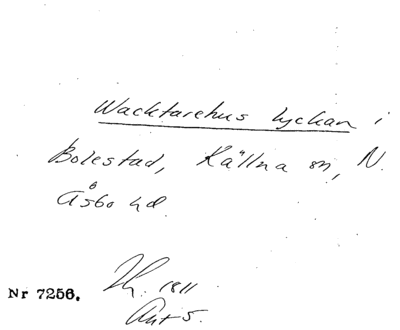 Wacktarehus lyckan i
Bolestad, Källna sn, N.
Åsbo hd.
Nr 7256.
1811
Akt 5.